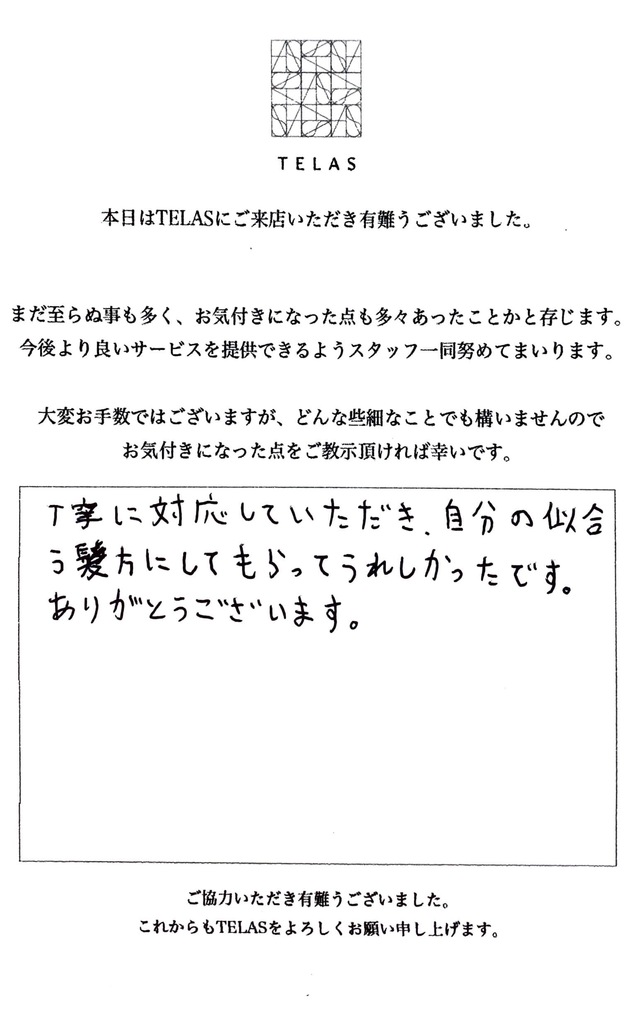 TELAS
本日はTELASにご来店いただき有難うございました。
まだ至らぬ事も多く、お気付きになった点も多々あったことかと存じます。
今後より良いサービスを提供できるようスタッフ一同努めてまいります。
大変お手数ではございますが、どんな些細なことでも構いませんので
お気付きになった点をご教示頂ければ幸いです。
丁寧に対応していただき、自分の似合
う髪方にしてもらってうれしかったです。
ありがとうございます。
ご協力いただき有難うございました。
これからもTELASをよろしくお願い申し上げます。